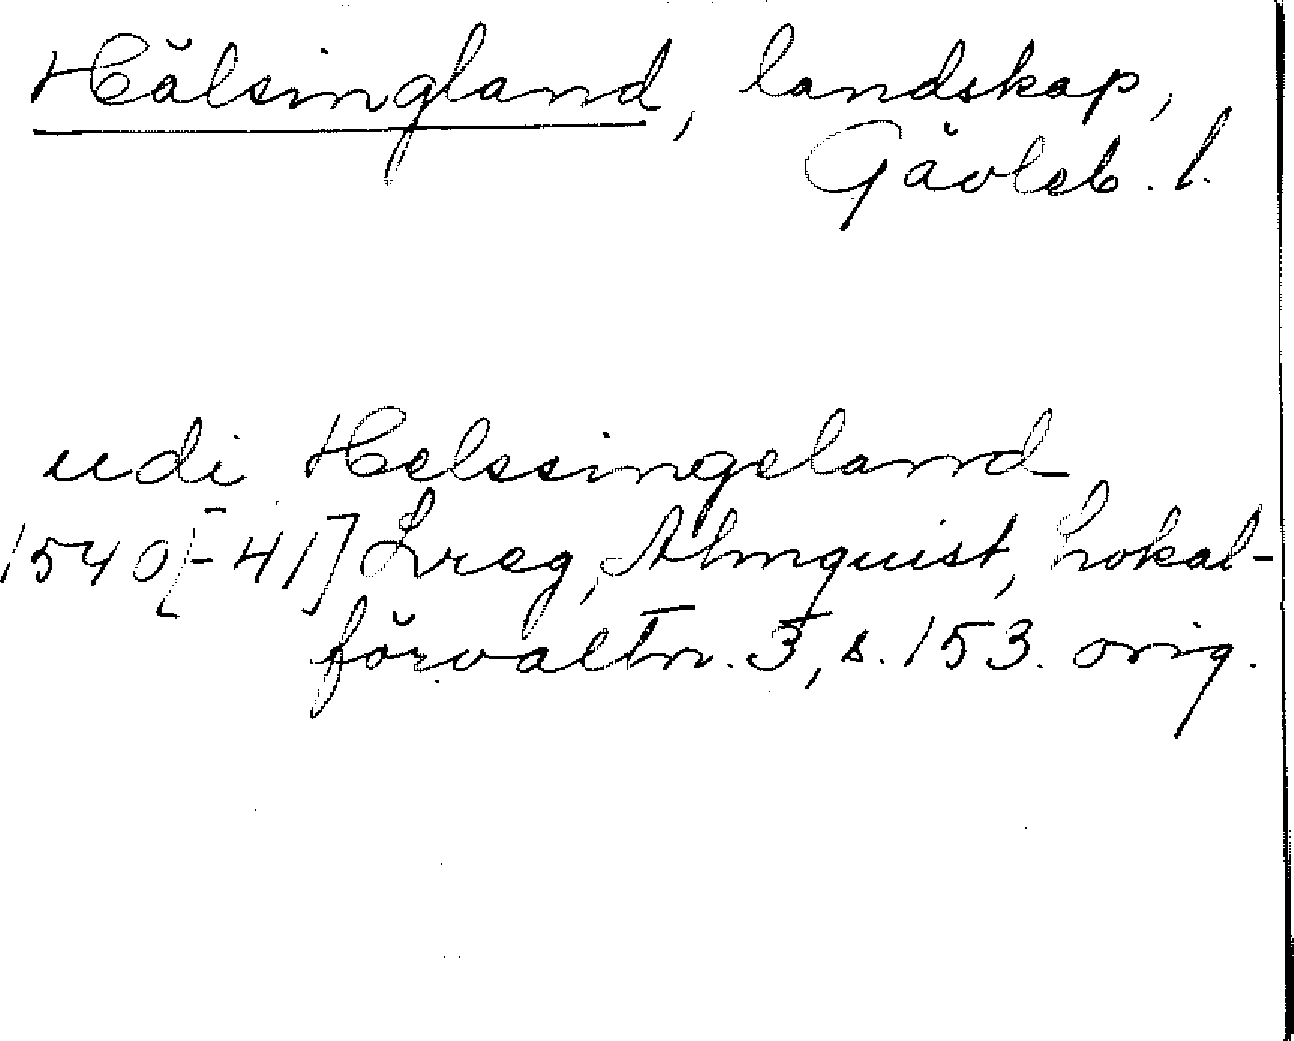 Hälsingland, landskap,
Gävleb. l.
udi Helssingeland
1540[-41] Lreg, Almquist, Lokal-
förvaltn. 3, s. 153. orig.